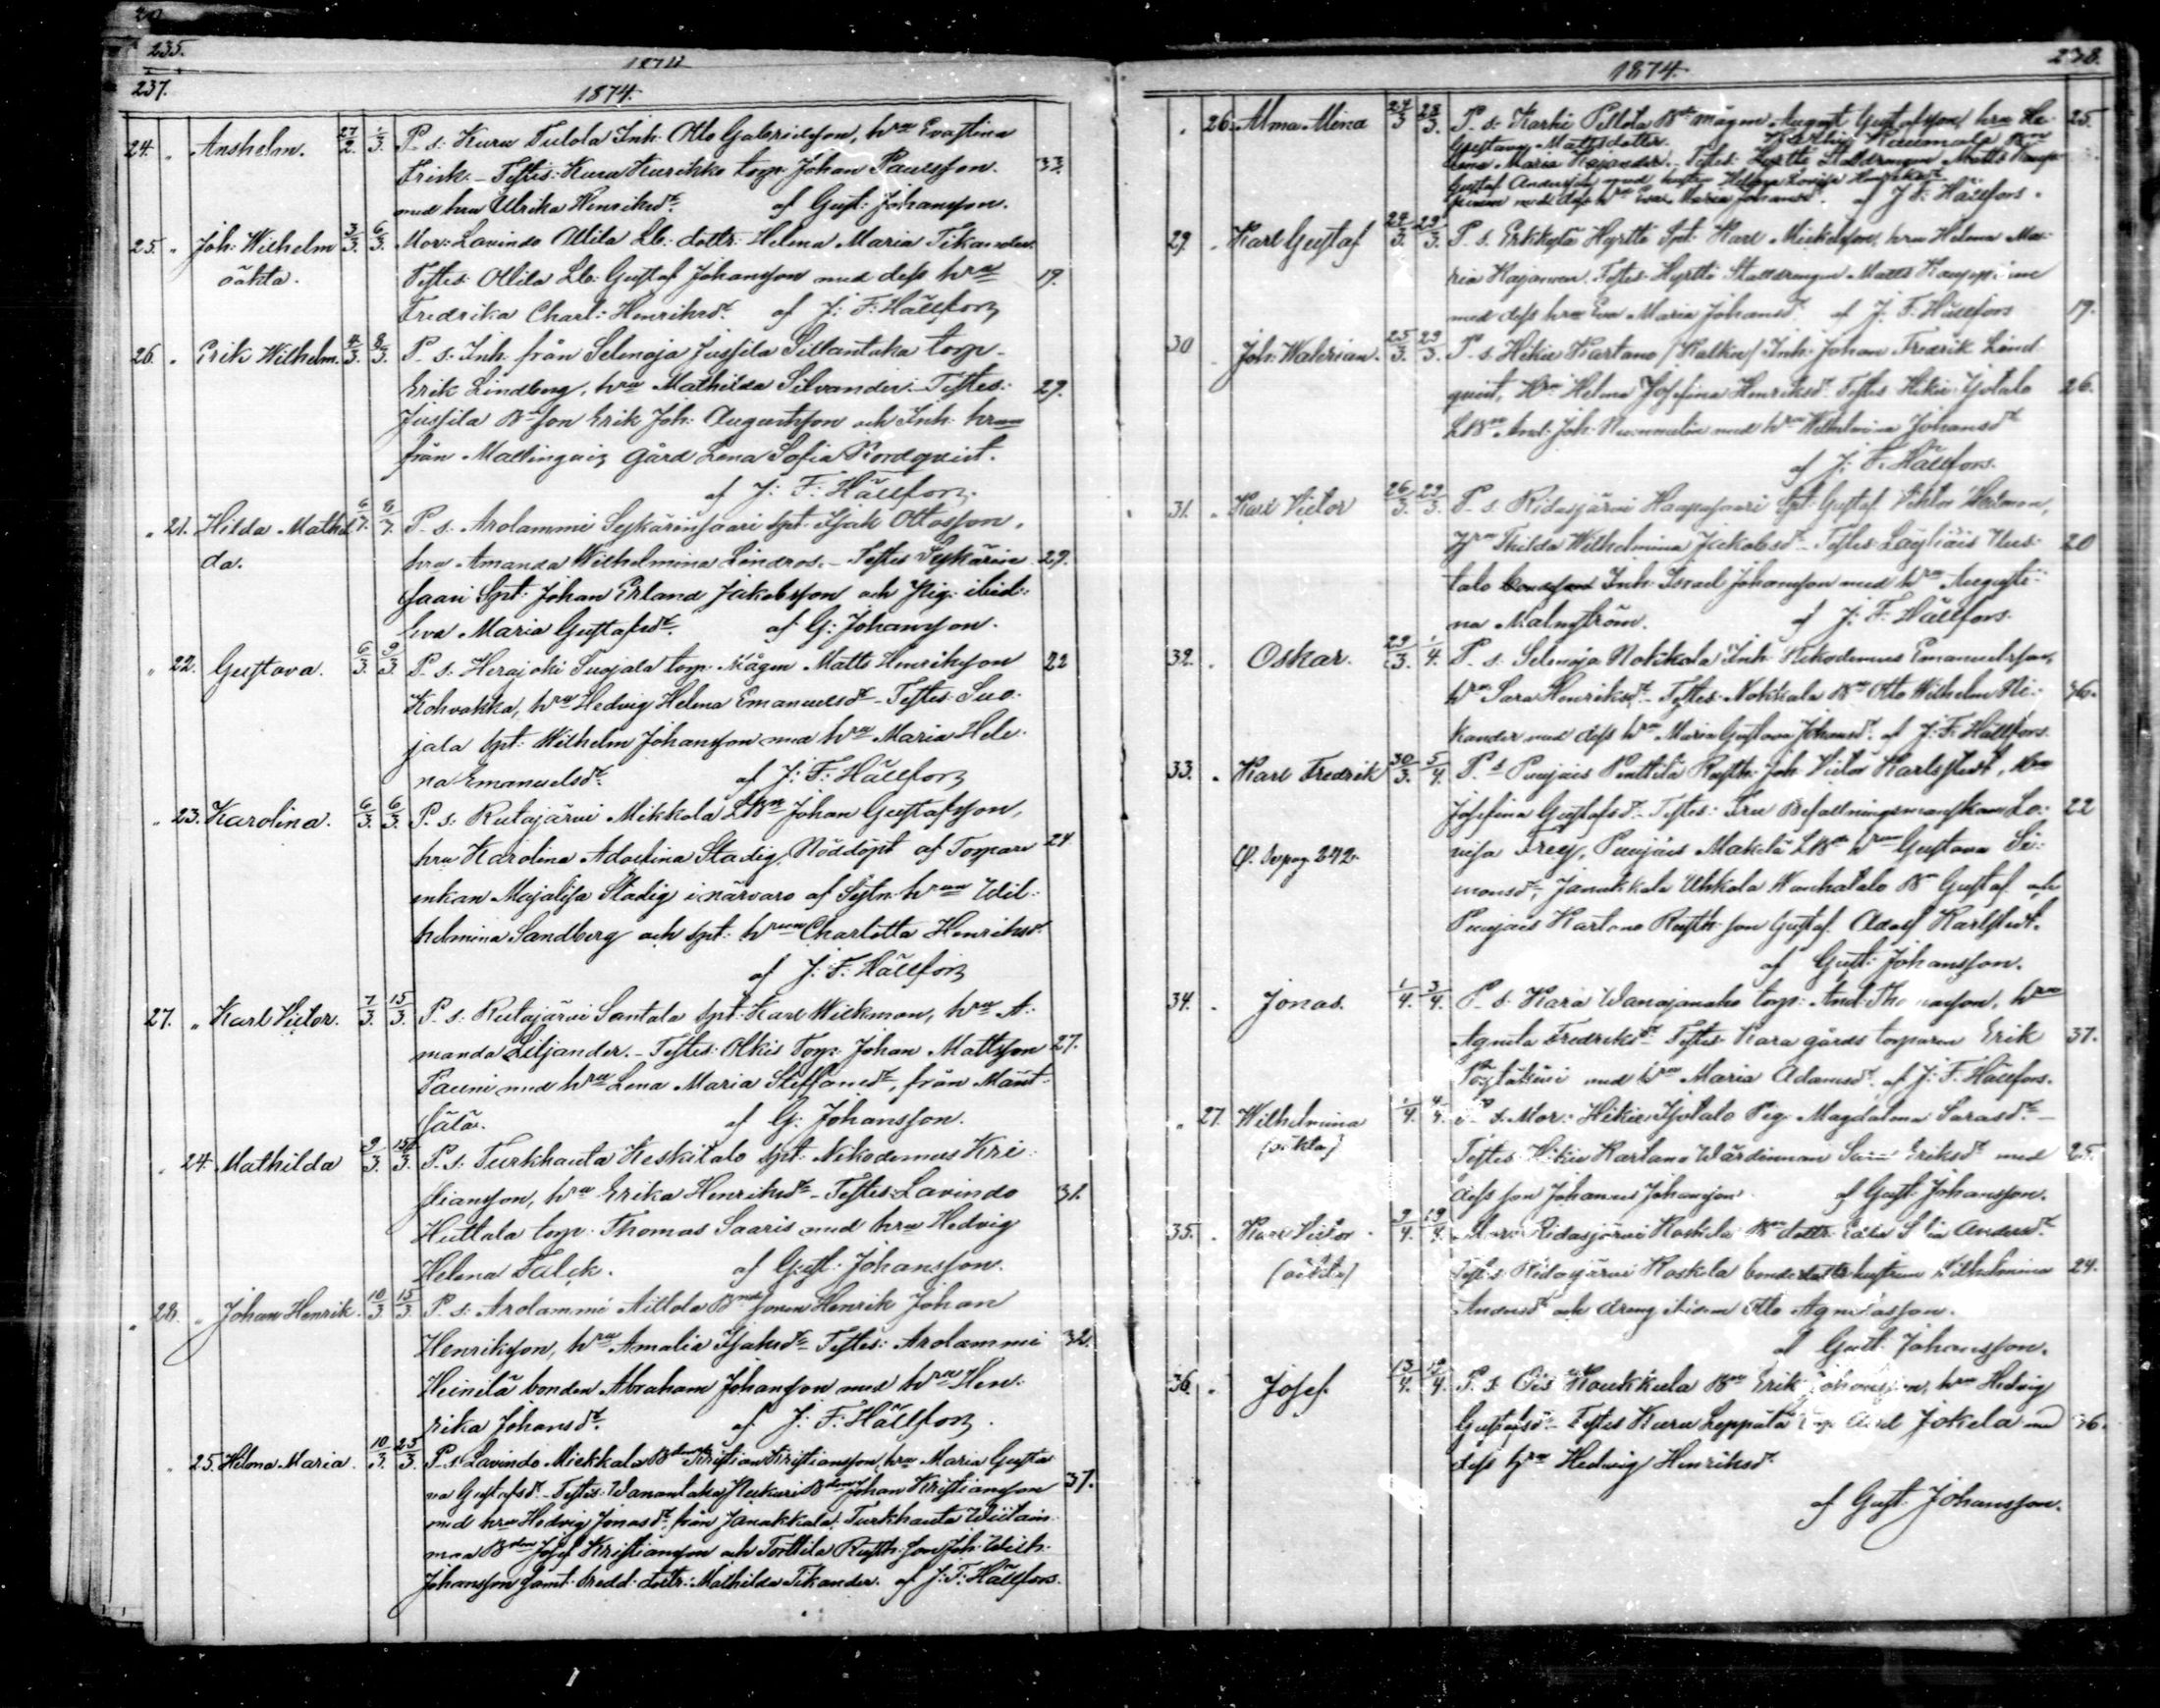 235.
237.
1874.
24. " Anshelm. 27/2. 1/3. P. s. Kuru Tulola Inh. Otto Gabrielsson, hru Evastina
Frisk. – Testes: Kuru Kurikko torp. Johan Paulsson. 33.
med hru Ulrika Henriksdr. af Gust. Johansson.
25. " Joh. Wilhelm 3/3. 6/3. Mor: Lavindo Ollila Lb. dottr. Helena Maria Tikander.
oäkta. Testes: Ollila Lb. Gustaf Johansson med dess hru 19.
Fredrika Charl: Henriksdr. af J. F. Hällfors
26. " Erik Wilhelm. 4/3. 8/3. P. s. Inh. från Selenoja Jussila Sillantaka torp
Erik Lindberg, hru Mathilda Silvander. Testes: 29.
Jussila Bn son Erik Joh. Augustsson och Inh. hrun
från Mallinguis Gård Lena Sofia Nordqvist.
af J. F. Hällfors.
" 21. Hilda Mathil 6/7. 8/7. P. s. Arolammi Sykärinsaari Spt. Isak Ottosson,
da. hru Amanda Wilhelmina Lindros. – Testes Sykärin 29.
saari Spt. Johan Erland Jakobsson och Pig. ibid:
Eva Maria Gustafsdr. af G. Johansson.
" 22. Gustava. 6/3. 9/3. P. s. Herajoki Suojala torp. Mågen Matts Henriksson 22
Kohvakka, hru Hedvig Helena Emanuelsdr – Testes: Suo-
jala Spt. Wilhelm Johansson med hru Maria Hele-
na Emanuelsdr. af J. F. Hällfors
" 23. Karolina. 6/3. 6/3. P. s. Rutajärvi Mikkola LBn Johan Gustafsson,
hru Karolina Adolfina Stadig, Nöddöpt af Torpare 24
enkan Majalisa Stadig i närvaro af Sytn. hrun Wil-
helmina Sandberg och Spt. hrun Charlotta Henriksdr.
af J. F. Hällfors
27. " Karl Victor. 7/3. 15/3. P. s. Rutajärvi Santala Spt. Karl Wickman, hru A-
manda Liljander. – Testes: Olkis Torp. Johan Mattsson 27.
Pauni med hru Lena Maria Steffansdr, från Mänt-
sälä. af G. Johansson.
" 24. Mathilda 9/3. 15/3. P. s. Turkhauta Keskitalo Spt. Nikodemus Kri-
stiansson, hru Erika Henriksdr – Testes: Lavindo 31.
Huttala torp. Thomas Saaris med hru Hedvig
Helena Falck. af Gust. Johansson.
28. " Johan Henrik. 10/3. 15/3. P. s. Arolammi Aittola Bnde sonen Henrik Johan
Henriksson, hru Amalia Isaksdr – Testes: Arolammi 32.
Heinilä bonden Abraham Johansson med hru Hen-
rika Johansdr. af J. F. Hällfors.
" 25. Helena Maria. 10/3. 25/3. P. s. Lavindo Mickkala Bden Kristian Kristiansson, hru Maria Gusta
va Gustafsdr – Testes: Wanantaka Nukari Bden Johan Kristiansson 37.
med hru Hedvig Jonasdr, från Janakkala: Turkhauta Wiitain
maa Bden Josef Kristiansson och Torttila Rusth. son Joh. Wilh.
Johansson samt Predd. dottr. Mathilda Tikander. af J. F. Hällfors.
238.
1874.
" 26. Alma Alina 24/3 28/3. P. s. Karhi Pillola Bde mågen August Gustafsson hru He- 25.
Gustava Mattsdotter.
lena Maria Kajander. – Testes: Hyrtti Stalldrengen Matts Kaup-
Gustaf Andersson med hustru Helena Lovisa
pinen med dess hru Eva Maria Johansdr. af J. F. Hällfors.
29. " Karl Gustaf 24/3. 29/3. P. s. Erkkylä Hyrtti Spt. Karl Mickelsson, hru Helena Ma-
ria Kajanen. Testes: Hyrtti Stalldrengen Matts Kauppinen
med dess hru Eva Maria Johansdr. af J. F. Hällfors 19.
30 Joh. Walerian. 25/3. 29/3. P. s. Hikiä Kartano /Kalkin/ Inh. Johan Fredrik Lind-
quist, Hru Helena Josefina Henriksdr. Testes Hikiä Isotalo 26.
LBn And. Joh. Nummelin med hru Wilhelmina Johansdr
af J. F. Hällfors.
31. " Karl Victor 26/3. 29/3. P. s. Ridasjärvi Haapasaari Spt. Gustaf Viktor Wedman,
Hru Thilda Wilhelmina Jakobsdr – Testes: Läyliäis Uus- 20
talo Inh. Israel Johansson med hru Augusti-
na Malmström. af J. F. Hällfors.
32. " Oskar. 29/3. 1/4. P. s. Selenoja Nokkala Inh. Nikodemus Emanuelsson,
hru Sara Henriksdr. – Testes: Nokkala Bn Otto Wilhelm Ni- 36.
kander med dess hru Maria Gustava Johansdr. af J. F. Hällfors.
33. " Karl Fredrik 30/3. 5/4. P. s. Puujais Penttilä Rusth. Joh. Victor Karlstedt, hru
Josefina Gustafsdr. – Testes: Fru Befallningsmanskan Lo- 22
visa Frey, Puujais Mäkilä LBn hrun Gustava Si-
monsdr, Janakkala Uhkola Wanhatalo Bn Gustaf och
Puujais Kartano Rusth. son Gustaf Adolf Karlstedt.
pag. 242.
af Gust. Johansson.
34. " Jonas. 1/4. 3/4. P. s. Kara Wanajanoho torp. And. Thomasson, hru
Agneta Fredriksdr. Testes Kara gårds torparen Erik 37.
med hru Maria Adamsdr. af J. F. Hällfors.
" 27. Wilhelmina 1/4. 4/4. P. s. Mor: Hikiä Isotalo Pig. Magdalena Sarasdr. –
(oäkta) Testes Hikiä Kartano Wärdinnan Eriksdr med 25.
dess son Johannes Johansson. af Gust. Johansson.
35. " Karl Victor 9/4. 19/4. Mor: Ridasjärvi Koskela Bn dottr. Andersdr.
(oäkta) Testes: Ridasjärvi Koskela bonde hustrun Wilhelmina 24.
Andersdr och dreng ibidem Otto
af Gust. Johansson.
36. " Josef. 13/4. 19/4. P. s. Ois Koukkula Bn Erik Johansson, hru Hedvig
Gustafsdr – Testes Kuru Leppälä Jokela med 36.
dess hru Hedvig Henriksdr.
af Gust. Johansson.